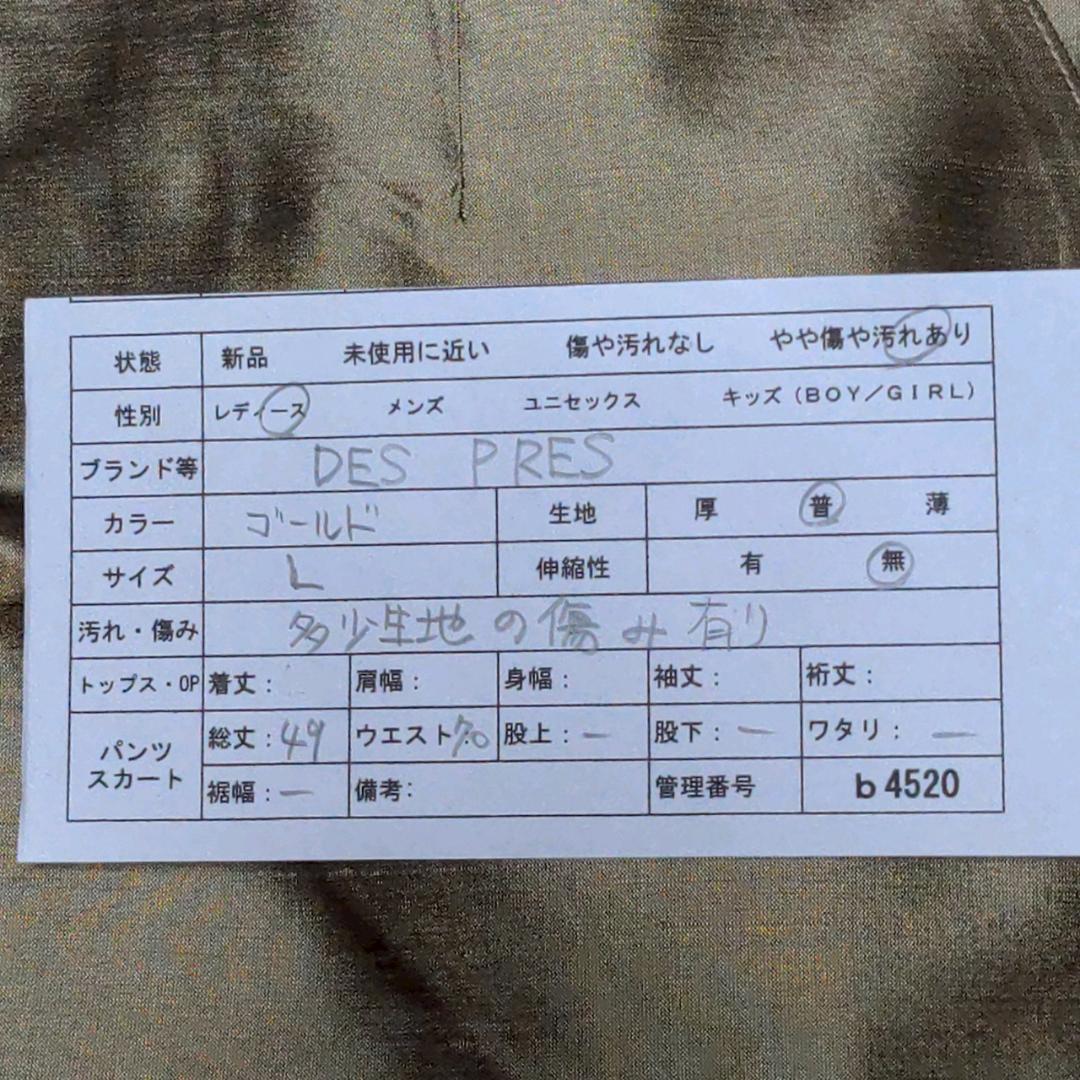 状態 新品 未使用に近い 傷や汚れなし やや傷や汚れあり
性別 レディース メンズ ユニセックス キッズ（BOY／GIRL）
ブランド等 DES PRES
カラー ゴールド 生地 厚 普 薄
サイズ L 伸縮性 有 無
汚れ・傷み 多少生地の傷み有り
トップス・OP 着丈： 肩幅： 身幅： 袖丈： 裄丈：
パンツ スカート 総丈：49 ウエスト：70 股上：— 股下：— ワタリ：—
裾幅：— 備考： 管理番号 b4520